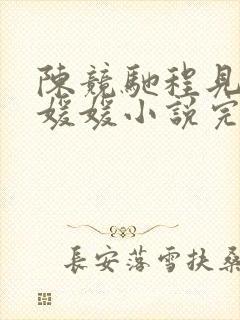 陳競馳程見
媛媛小說完
長安落雪扶桑